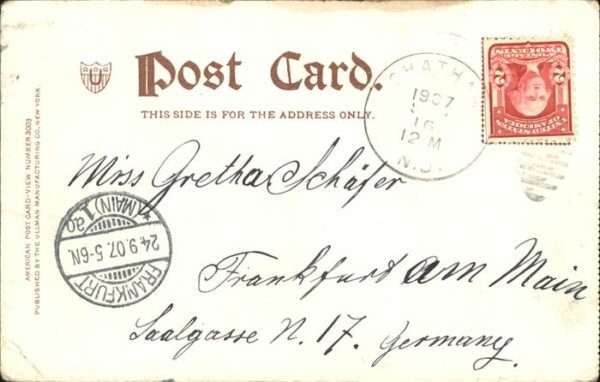 Post Card.
THIS SIDE IS FOR THE ADDRESS ONLY.
AMERICAN POST CARD-VIEW NUMBER 3003
PUBLISHED BY THE ULLMAN MANUFACTURING CO. NEW YORK
CHATHAM
1907
16
12 M
N.J.
2 2
UNITED STATES
OF AMERICA
Miss Gretha Schäfer
Frankfurt am Main
Saalgasse N. 17. Germany.
FRANKFURT
24.9.07. 5-6N.
(MAIN) 1